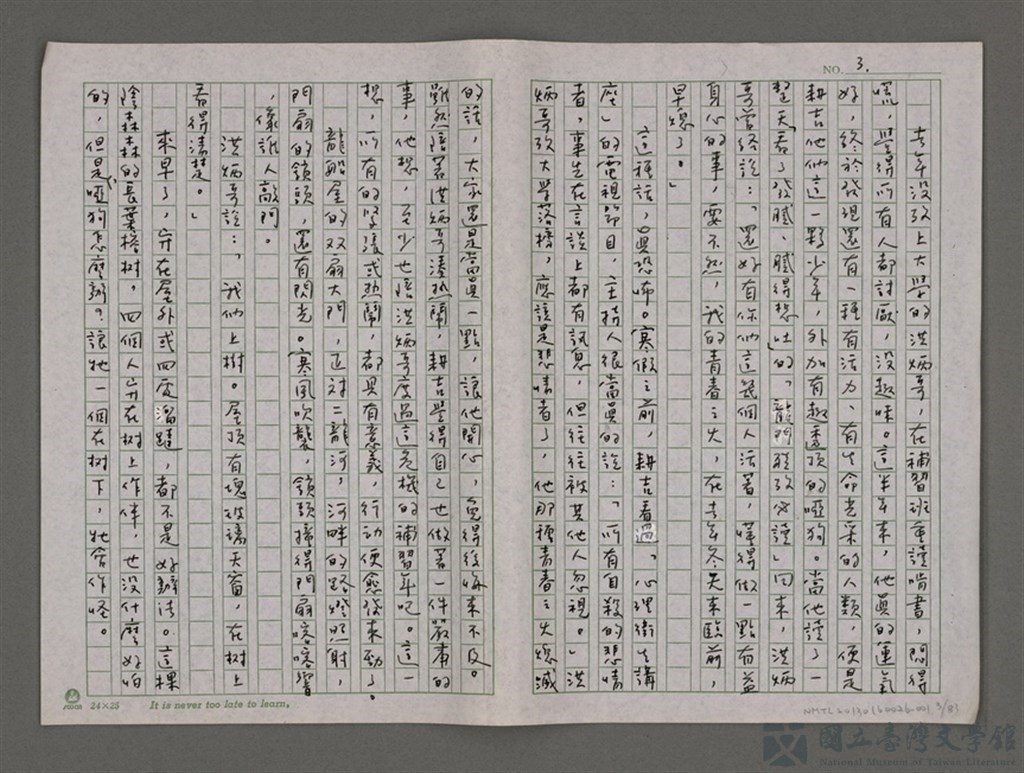 NO. 3.
去年沒攷上大學的洪炳哥，在補習班重讀啃書，悶得
慌，覺得所有人都討厭，沒趣味。這半年來，他真的運氣
好，終於發現還有一種有活力、有生命光采的人類，便是
耕吉他們這一夥少年，外加有趣透頂的啞狗。當他讀了一
整天「看了發膩、膩得想吐」的「龍門聯攷必讀」回來，洪炳
哥曾經說：「還好有你們這幾個人活著，懂得做一點有益
身心的事，要不然，我的青春之火，在去年冬天來臨前，
早熄了。」
這種話，真恐怖。寒假之前，耕吉看過「心理衛生講
座」的電視節目，主持人很當真的說：「所有自殺的悲情
者，事先在言談上都有訊息，但往往被其他人忽視。」洪
炳哥攷大學落榜，應該是悲情者了，他那種青春之火熄滅
的話，大家還是當真一點，讓他開心，免得後悔來不及。
雖然陪著洪炳哥湊熱鬧，耕吉覺得自己也做著一件嚴肅的
事，他想，至少也陪洪炳哥度過這危機的補習年吧。這一
想，所有的緊張或熱鬧，都具有意義，行動便愈發來勁了。
龍船屋的双扇大門，正对二龍河，河畔的路燈照射，
門扇的鎖頭，還有閃光。寒風吹襲，鎖頭擂得門扇喀喀響
，像誰人敲門。
洪炳哥說：「我們上樹。屋頂有塊玻璃天窗，在樹上
看得清楚。」
來早了，守在屋外或四處溜躂，都不是好辦法。這棵
陰森森的長葉榕树，四個人守在树上作伴，也沒什麼好怕
的，但是，啞狗怎麼辦？讓牠一個在树下，牠會作怪。
24×25
It is never too late to learn.
NMTL20130160026-001 3/83
國立臺灣文學館
National Museum of Taiwan Literature